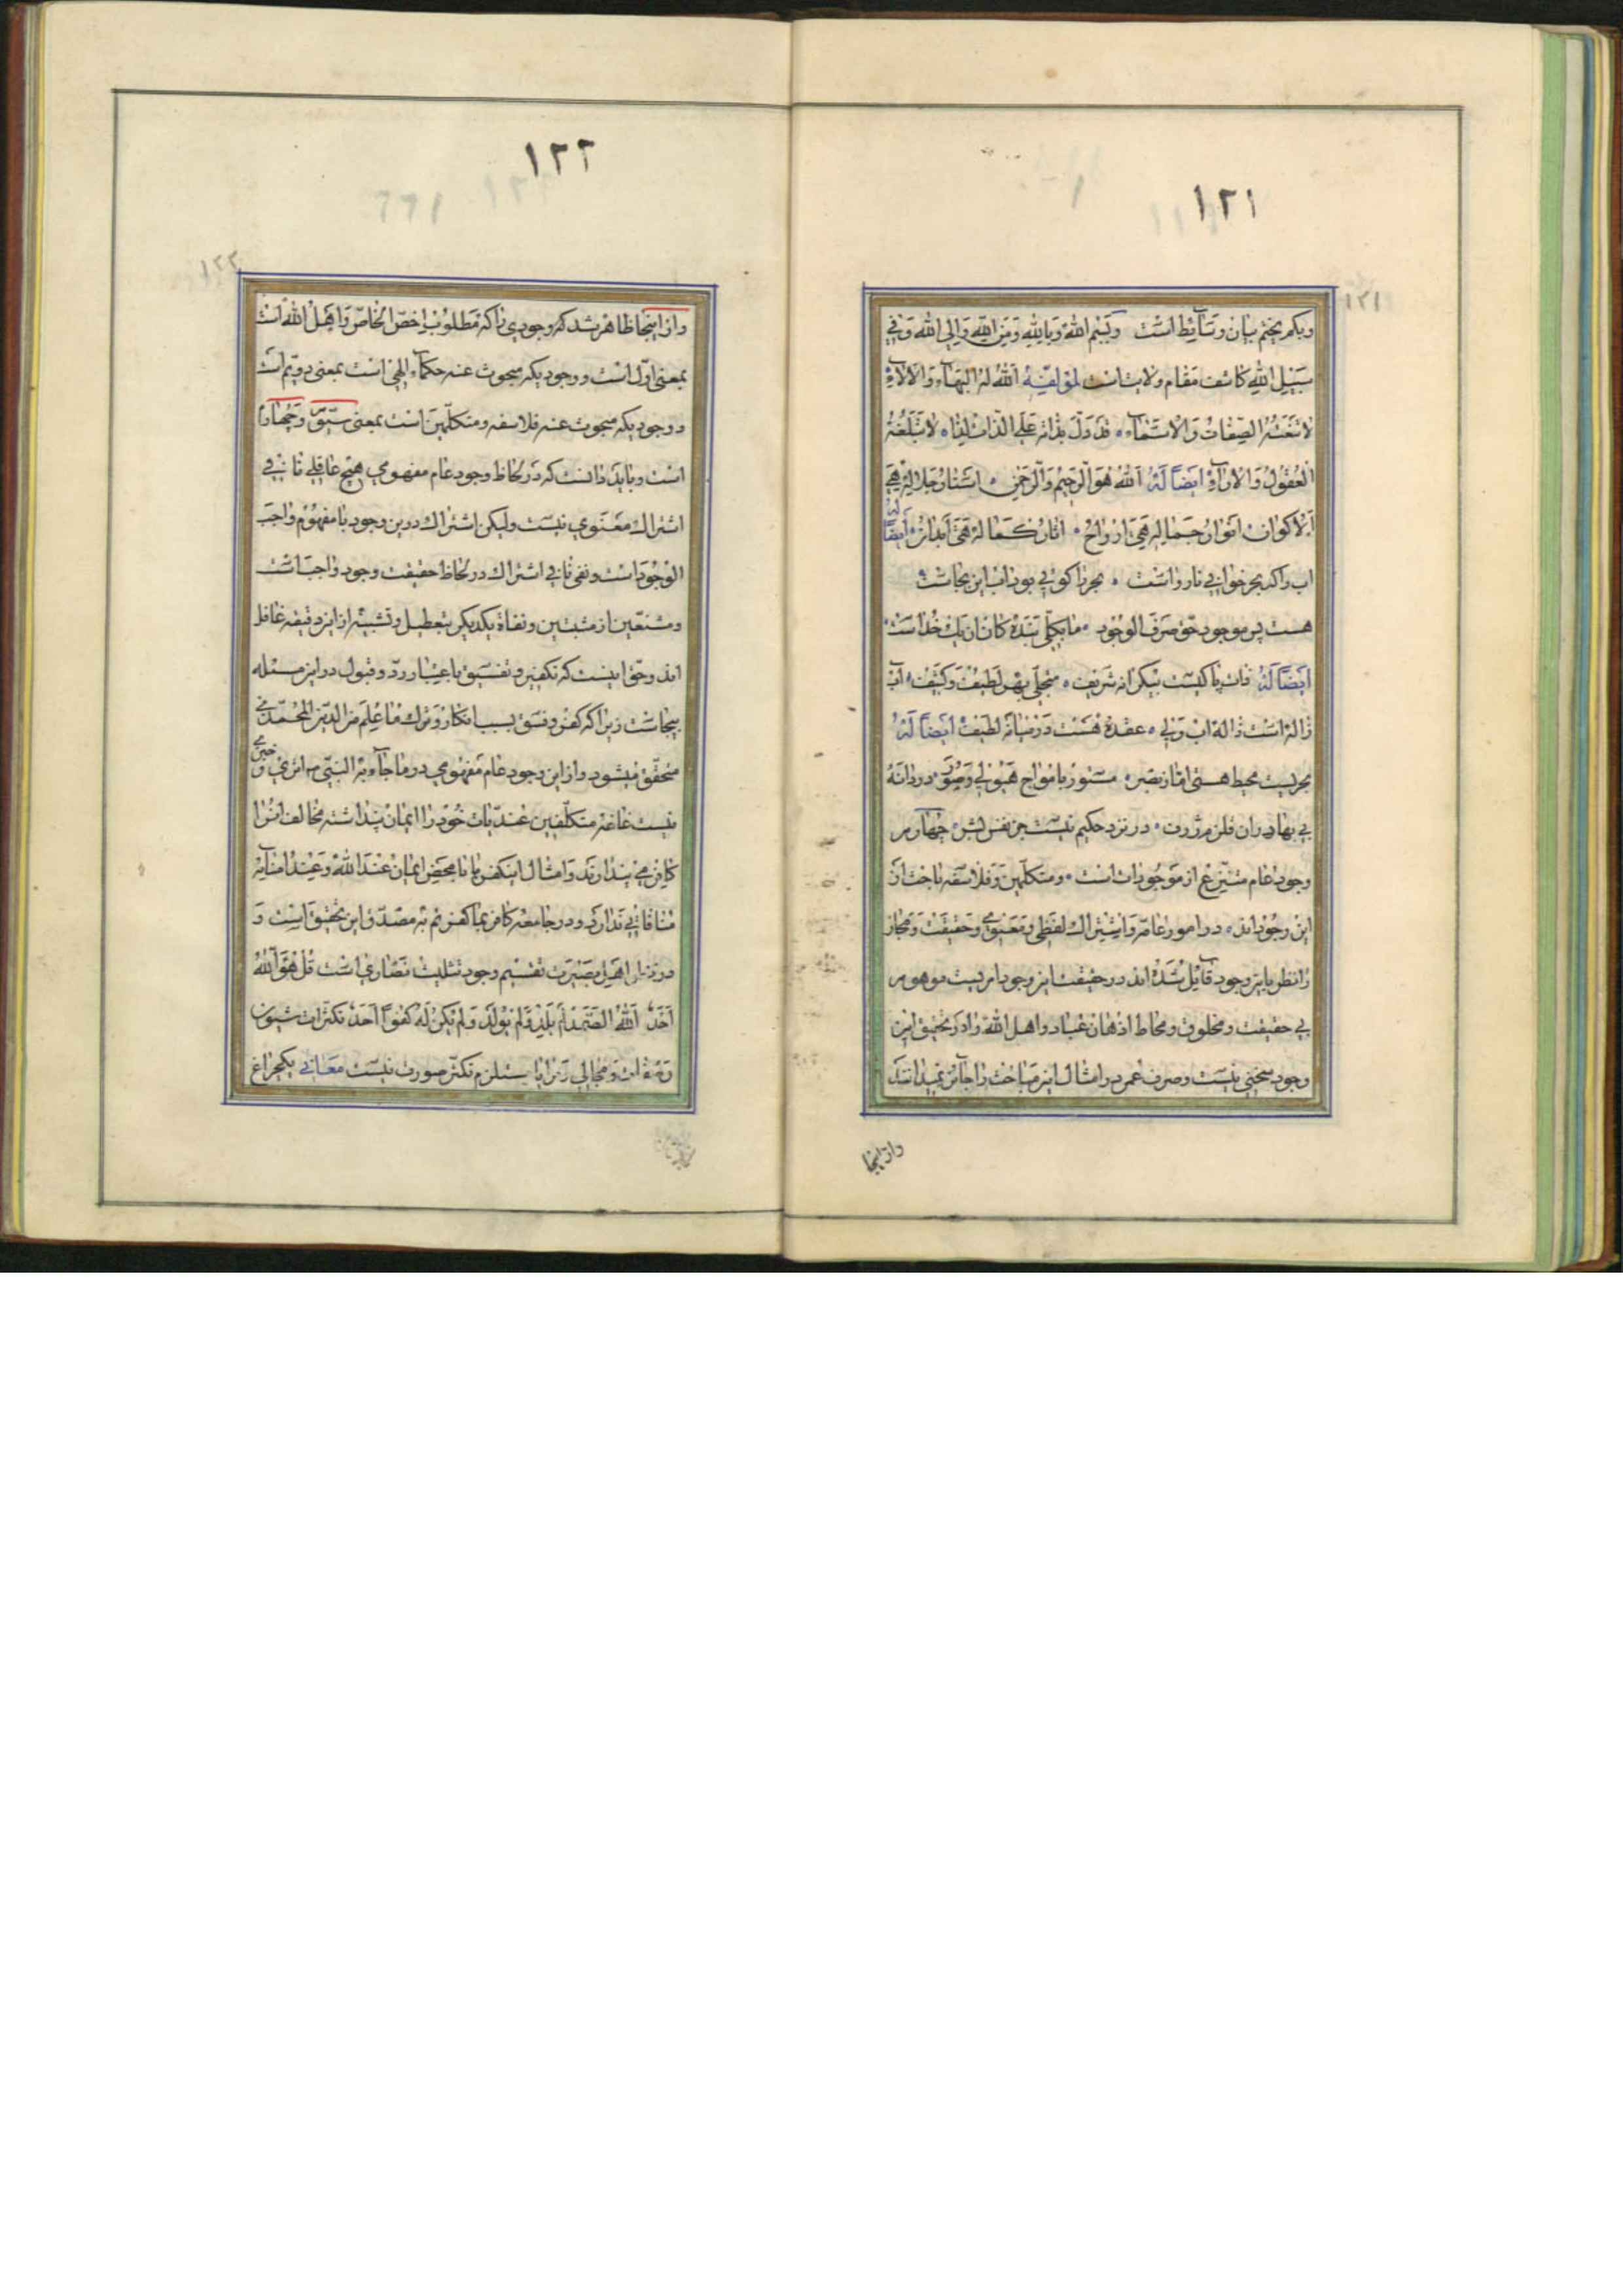 ١٢١
١٢١
وبکم یختم بیان وسائط است وبسم الله وبالله ومن الله والی الله وفی
سبیل الله کاشف مقام ولایت است لمؤلفه الله له البهاء والالاء
لا تنعته الصفات والاسماء قد دل بذاته علی الذات لذا لا تبلغه
العقول والاراء ایضا له الله هو الرحیم والرحمن استار جلاله هی
الاکوان انوار جماله هی ارواح اثار کماله هی ابدان ایضا له
اب راکه بحر خوانی نارواست بحر را کوئی بود اب این بجاست
هست پس موجود حق صرف الوجود ما یکلی بنده کان ان یک خداست
ایضا له ذات پاکیست بیکرانه شریف منجلی بهر لطیف وکثیف اب
ژاله است ژاله اب ولی عقده هست در میانه لطیف ایضا له
بحریست محیط هستی اما ز بصر مستور بامواج هیولی وصور دردانه
بی بهادران قلزم ژرف در نزد حکیم نیست جز نفس بشر چهارم
وجود عام منتزع از موجودات است ومتکلمین وفلاسفه باحث از
این وجوداند در امور عامه واشتراک لفظی ومعنوی وحقیقت ومجاز
را نظر باین وجود قایل شده اند در حقیقت این وجود امریست موهوم
بی حقیقت ومخلوق ومحاط اذهان عباد واهل الله را در تحقیق این
وجود سخنی نیست وصرف عمر در امثال این مباحث را جائز نمیدانند
واز اینجا
١٢٢
١٢٢
واز اینجا ظاهر شد که وجودی را که مطلوب اخص الخاص واهل الله است
بمعنی اول است ووجودیکه مبحوث عنه حکماء الهی است بمعنی دویم است
ووجودیکه مبحوث عنه فلاسفه ومتکلمین است بمعنی سیم وچهارم
است وباید دانست که در لحاظ وجود عام مفهومی هیچ عاقلی نافی
اشتراک معنوی نیست ولیکن اشتراک در این وجود با مفهوم واجب
الوجود است ونفی نافی اشتراک در لحاظ حقیقت وجود واجب است
ومتتبعین از مثبتین ونفاة یکدیگر بتعطیل وتشبیه از این دقیقه غافل
اند وحق اینست که تکفیر وتفسیق باعتبار رد وقبول در این مسئله
بیجاست زیرا که کفر وفسق بسبب انکار وترک ما علم من الدین المحمدی
متحقق میشود واز این وجود عام مفهومی در ما جاء به النبی ص اثری وخبری
نیست غافه متکلفین عندیات خود را ایمان پنداشته مخالف انرا
کافر می پندارند وامثال این کفر با ما بمحض ایمان عند الله وعند امنائه
منافاتی ندارد ودر جامعه کافر بما کفرتم به مصدق این تحقیق است و
در نزد اهل بصیرت تقسیم وجود تثلیث نصاری است قل هو الله
احد الله الصمد لم یلد ولم یولد ولم یکن له کفوا احد تکثرات شیون
وصفات ومجالی ومرایا مستلزم تکثر صورت نیست معانی یکچراغ